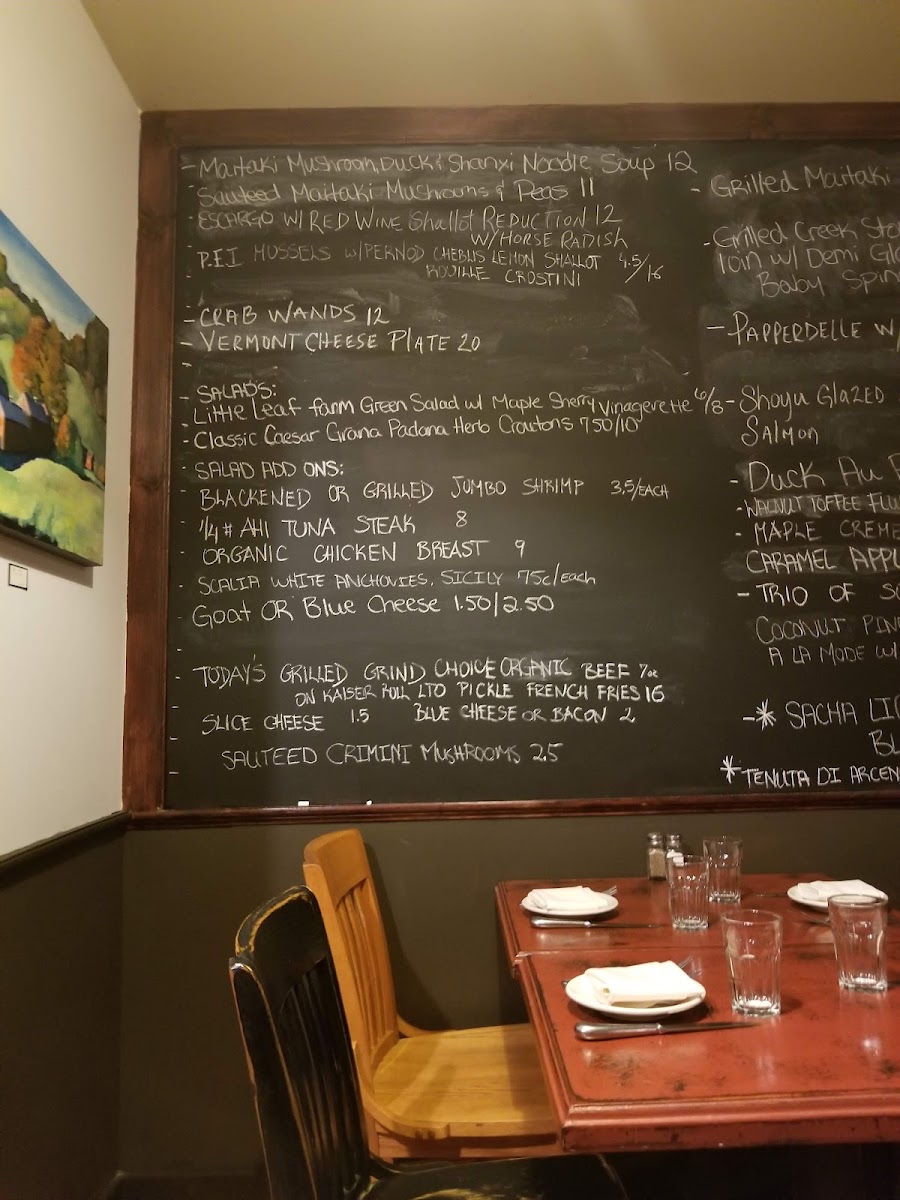 - Maitaki Mushroom, Duck & Shanxi Noodle Soup 12
- Sauteed Maitaki Mushrooms & Peas 11
- ESCARGO W/ RED WINE Shallot REDUCTION 12
W/ HORSE RADISH
- P.E.I MUSSELS W/PERNOD CHEBLIS LEMON SHALLOT 4.5/16
ROUILLE CROSTINI
- CRAB WANDS 12
- VERMONT CHEESE PLATE 20
- SALADS:
- Little leaf farm Green Salad w/ Maple Sherry Vinagerette 6/8
- Classic Caesar Grana Padana Herb Croutons 7.50/10
- SALAD ADD ONS:
- BLACKENED OR GRILLED JUMBO SHRIMP 3.5/EACH
- 1/4 # AHI TUNA STEAK 8
- ORGANIC CHICKEN BREAST 9
- SCALIA WHITE ANCHOVIES, SICILY 75¢/Each
- Goat OR Blue Cheese 1.50/2.50
- TODAY'S GRILLED GRIND CHOICE ORGANIC BEEF 7oz
ON KAISER ROLL LTO PICKLE FRENCH FRIES 16
- SLICE CHEESE 1.5 BLUE CHEESE OR BACON 2
SAUTEED CRIMINI MUSHROOMS 2.5
- GRILLED MAITAKI
- Grilled Creek Sto
loin w/ Demi Gla
Baby Spin
- PAPPERDELLE W/
- Shoyu GLAZED
SALMON
- DUCK AU
- WALNUT TOFFEE FLU
- MAPLE CREME
CARAMEL APPL
- TRIO OF SO
COCONUT PIN
A LA MODE W/
-* SACHA LIC
BL
* TENUTA DI ARCEN